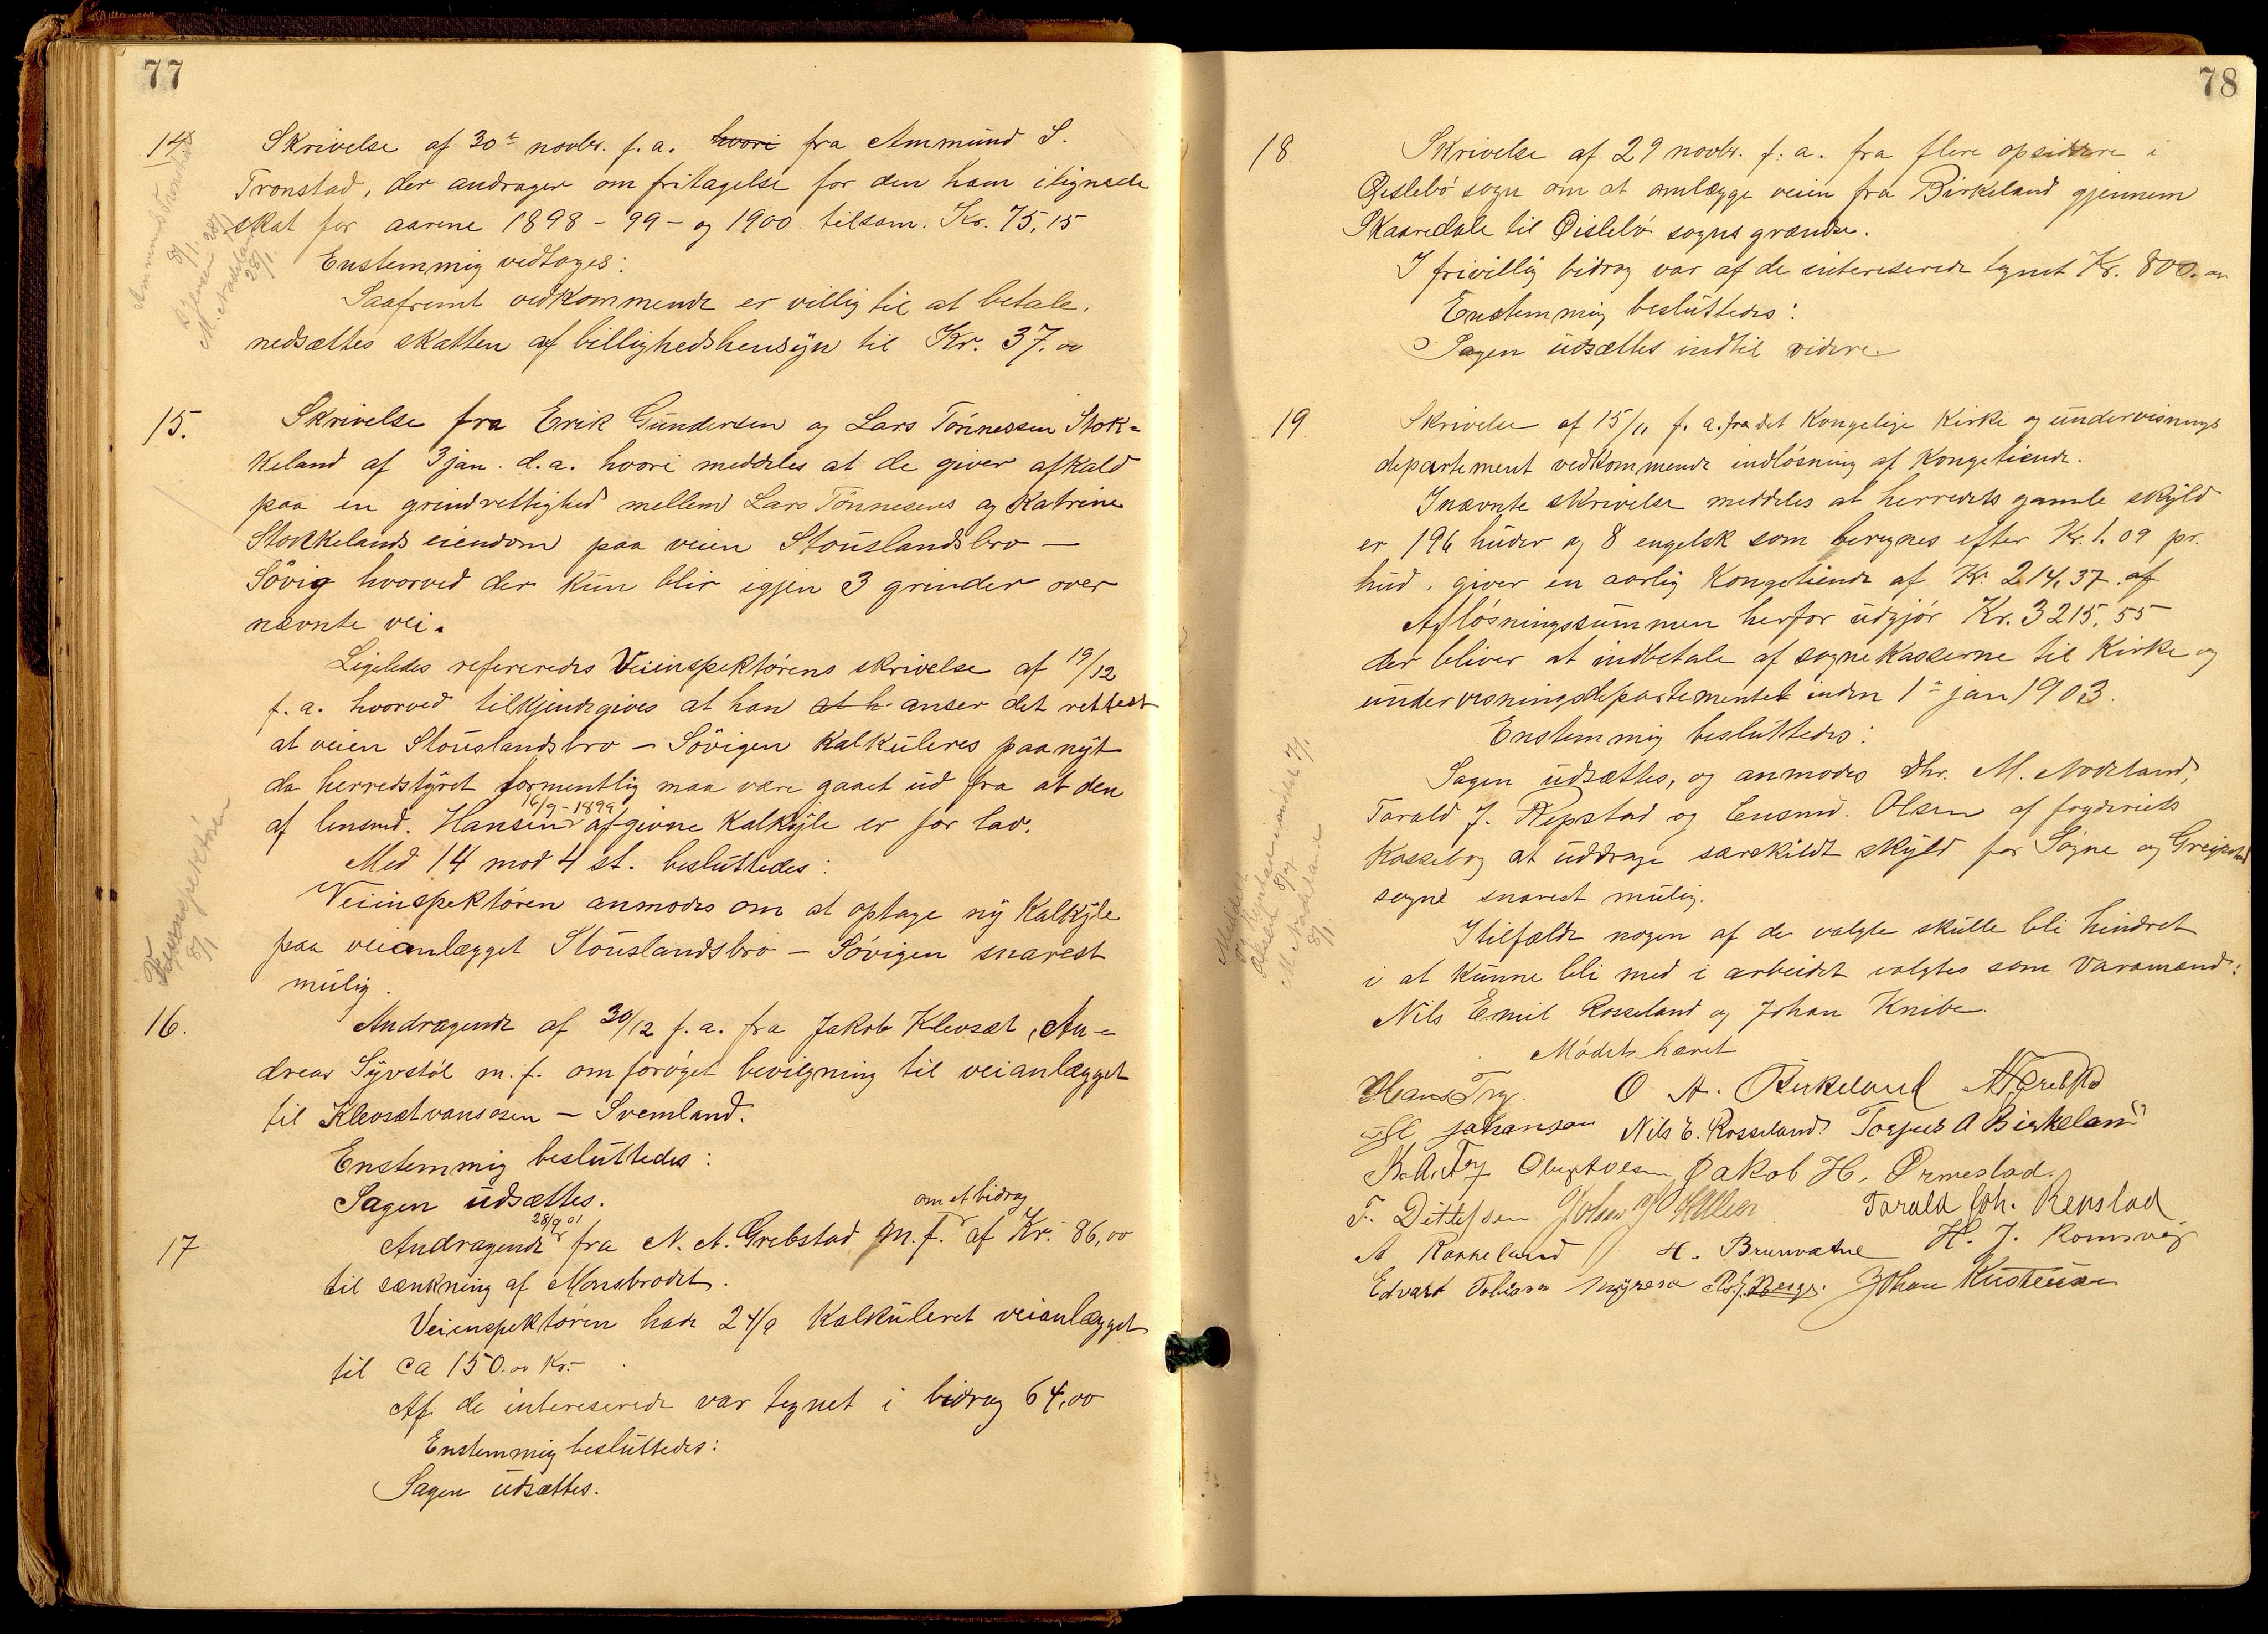 77
14 Skrivelse af 30te novbr. f. a. hvori fra Ammund S.
Tronstad, der andrager om fritagelse for den ham ilignede
skat for aarene 1898 - 99 - og 1900 tilsam. Kr. 75,15
Enstemmig vedtoges:
Saafremt vedkommende er villig til at betale,
nedsættes skatten af billighedshensyn til Kr. 37.00
Ammund Tronstad
8/1. 28/1
M. Nodeland
28/1.
15. Skrivelse fra Erik Gundersen og Lars Tönnessen Stok-
keland af 3 jan. d.a. hvori meddeles at de giver afkald
paa en grindrettighed mellem Lars Tönnesens og Katrine
Stokkelands eiendom paa veien Stouslandsbro -
Sövig hvorved der kun blir igjen 3 grinder over
nævnte vei.
Ligeledes refereredes Veiinspektörens skrivelse af 19/12
f. a. hvorved tilkjendegives at han at h anser det rettest
at veien Stouslandsbro - Sövigen kalkuleres paa nyt
da herredstyret formentlig maa være gaaet ud fra at den
16/9-1899
af lensmd. Hansen afgivne kalkyle er for lav.
Med 14 mod 4 st. besluttedes:
Veiinspektören anmodes om at optage ny kalkyle
paa veianlægget Stouslandsbro - Sövigen snarest
mulig.
8/1
16. Andragende af 30/12 f. a. fra Jakob Klevsæt, An-
dreas Syvstöl m. f. om foröget bevilgning til veianlægget
til Klevsætvansosen - Svemland.
Enstemmig besluttedes:
Sagen udsættes.
28/9 01 om et bidrag
17 Andragende fra N. A. Grebstad m. f. af Kr. 86,00
til sænkning af Monsbrodet.
Veiinspektören hade 24/9 kalkuleret veianlægget
til ca 150.00 Kr.-
Af de intereserede var tegnet i bidrag 64,00
Enstemmig besluttedes:
Sagen udsættes.
78
18. Skrivelse af 29 novbr. f. a. fra flere opsiddere i
Öislebö sogn om at omlægge veien fra Birkeland gjennem
Skaaredale til Öislebö sogns grændse.
I frivillig bidrag var af de intereserede tegnet Kr. 800.00
Enstemmig besluttedes:
Sagen udsættes indtil videre.
19. Skrivelse af 15/11 f. a. fra det Kongelige Kirke og undervisnings
departement vedkommende indlösning af Kongetiende.
I nævnte skrivelse meddeles at herredets gamle skyld
er 196 huder og 8 engelsk som beregnes efter Kr. 1.09 pr.
hud, giver en aarlig Kongetiende af Kr. 214,37. af
Aflösningssummen herfor udgjör Kr. 3215,55
der bliver at indbetale af sognekasserne til Kirke og
undervisningsdepartementet inden 1te jan 1903.
Enstemmig besluttedes:
Sagen udsættes, og anmodes Dhr. M. Nodeland,
Tarald J. Repstad og lensmd. Olsen af fogderiets
kassebog at uddrage særskildt skyld for Sögne og Greipstad
sogne snarest mulig.
I tilfælde nogen af de valgte skulle bli hindret
i at kunne bli med i arbeidet valgtes som Varamænd:
Nils Emil Rosseland og Johan Knibe.
M. Nodeland
8/1
Mödet hævet
Hans Try. O A. Birkeland N Grebstad
Johansen Nils E. Rosseland. Torjus A Birkeland
K. A. Try Jakob H. Ormestad.
F. Ditlefsen Tarald Joh. Repstad
A H. Brunvatne H. J. Romsvig
Edvart Tobisen Johan Kristensen